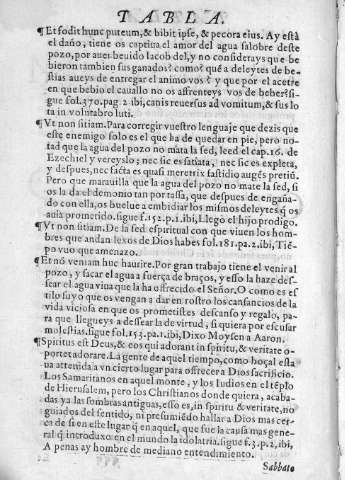 TABLA.
¶Et fodit hunc puteum, & bibit ipse, & pecora eius. Ay está
el daño, tiene os captiua el amor del agua salobre deste
pozo, por auer beuido Iacob del, y no considerays que be
bieron tambien sus ganados? como? q̃ a deleytes de be-
stias aueys de entregar el animo vos? y que por el acetre
en que bebio el cauallo no os affrenteys vos de beber? si-
gue fol. 370. pag. 2. ibi, canis reuersus ad vomitum, & sus lo
ta in volutabro luti.
¶Vt non sitiam. Para corregir vuestro lenguaje que dezis que
este enemigo solo es el que ha de quedar en pie, pero no-
tad que la agua del pozo no mata la sed, leed el cap. 16. de
Ezechiel y vereyslo; nec sic es satiata, nec sic es expleta,
y despues, nec facta es quasi meretrix fastidio augẽs pretiũ.
Pero que marauilla que la agua del pozo no mate la sed, si
os la da el demonio tan por tassa, que despues de engaña-
do con ella, os buelue a embidiar los mismos deleytes q̃ os
auia prometido. sigue f. 152. p. 1. ibi, Llegò el hijo prodigo.
¶Vt non sitiam. De la sed espiritual con que viuen los hom-
bres que andan lexos de Dios habes fol. 181. pa. 2. ibi, Tiẽ-
po vuo que amenazo.
¶Et nò veniam huc haurite. Por gran trabajo tiene el venir al
pozo, y sacar el agua a fuerça de braços, y esso la haze des-
sear el agua viua que la ha offrecido el Señor. O como es es
tilo suyo que os vengan a dar en rostro los cansancios de la
vida viciosa en que os prometistes descanso y regalo, pa-
ra que llegueys a dessear la de virtud, si quiera por escusar
molestias. sigue fol. 153. pa. 1. ibi, Dixo Moysen a Aaron.
¶Spiritus est Deus, & eos qui adorant in spiritu, & veritate o-
portet adorare. La gente de aquel tiempo, como boçal esta
ua attenida a vn cierto lugar para offrecer a Dios sacrificio.
Los Samaritanos en aquel monte, y los Iudios en el tẽplo
de Hierusalem, pero los Christianos donde quiera, acaba-
das ya las sombras antiguas, esso es, in spiritu & veritate, no
guiados del sentido, ni presumiẽdo hallar a Dios mas cer-
ca de si en este lugar q̃ en aquel, que fue la causa mas gene-
ral q̃ introduxo en el mundo la idolatria. sigue f. 3. p. 2. ibi,
A penas ay hombre de mediano entendimiento.
Sabbato